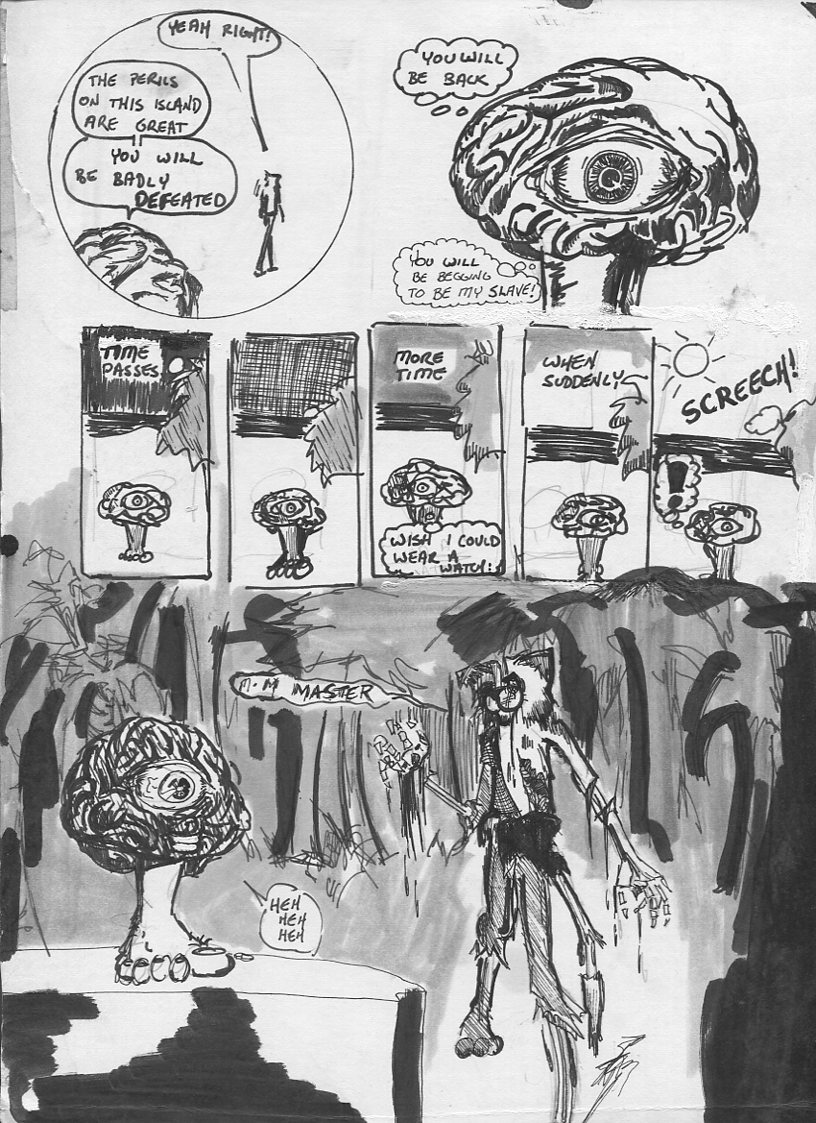 YEAH RIGHT!
THE PERILS
ON THIS ISLAND
ARE GREAT
YOU WILL
BE BADLY
DEFEATED
YOU WILL
BE BACK
YOU WILL
BE BEGGING
TO BE MY SLAVE!
TIME
PASSES
MORE
TIME
WISH I COULD
WEAR A
WATCH!
WHEN
SUDDENLY
SCREECH!
!
M-M MASTER
HEH
HEH
HEH